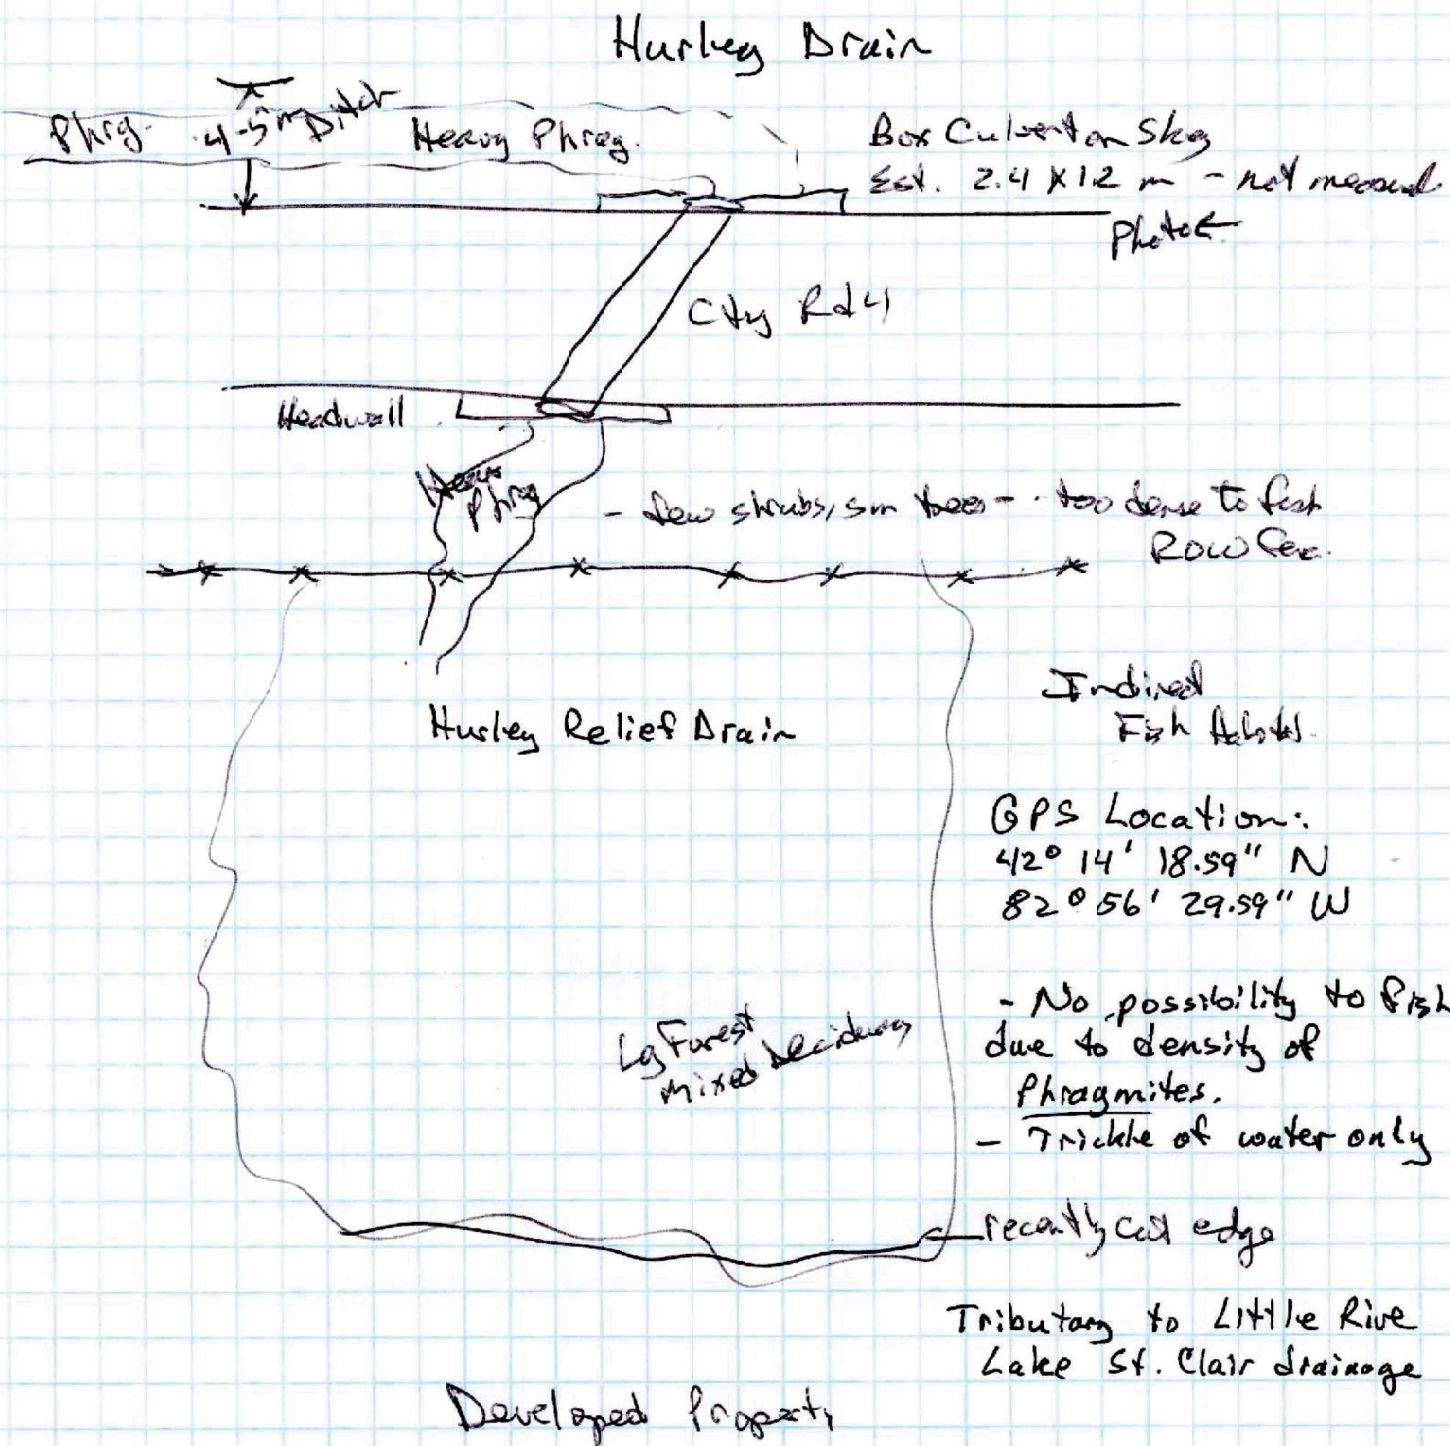 Hurley Drain
Phrg. 4-5m Ditch Heavy Phrag.
Box Culvert on Skg
Est. 2.4 X 1.2 m - not measured
Photo
Cty Rd 41
Headwall
Heavy
Phrg
- few shrubs, sm trees - too dense to fish
ROW fex.
Indirect
Fish Habitat
Hurley Relief Drain
GPS Location:
42° 14' 18.59" N
82° 56' 29.59" W
- No possibility to fish
due to density of
Phragmites.
- Trickle of water only
Lg Forest
mixed Deciduous
recently cut edge
Tributary to Little Rive
Lake St. Clair drainage
Developed Property